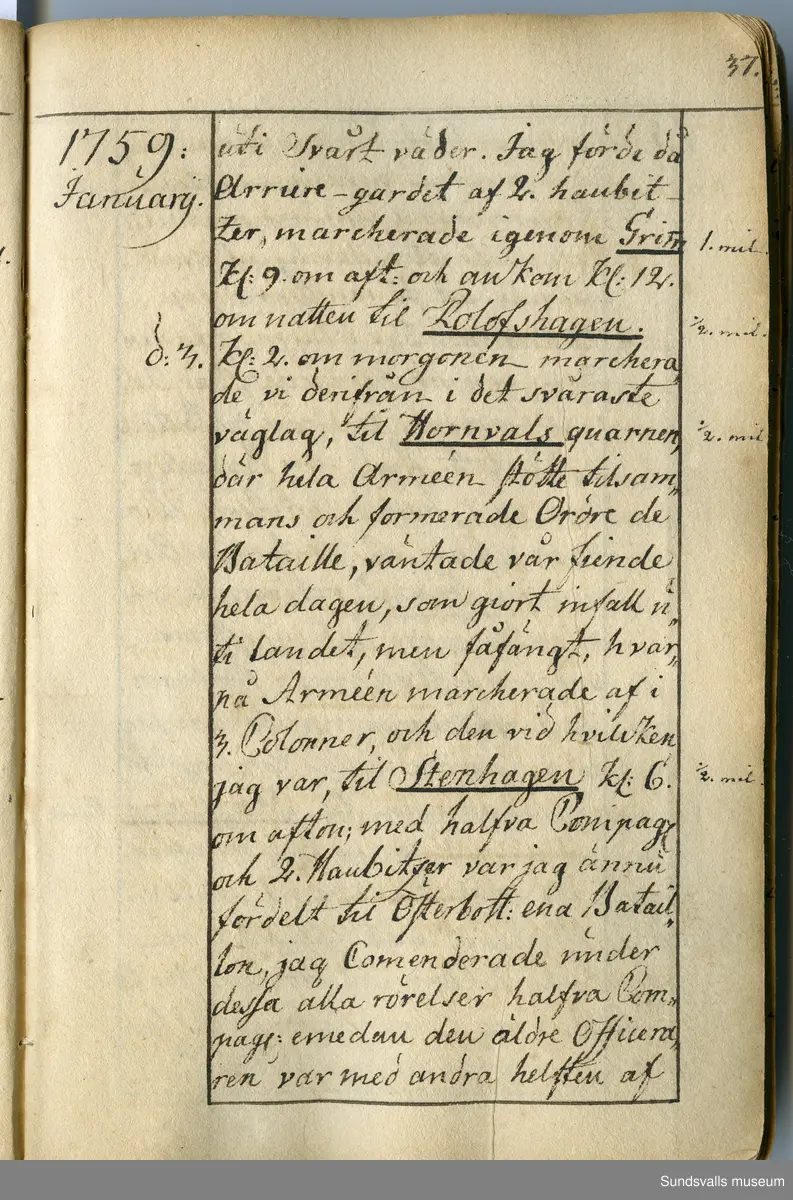 37.
1759:
Januarij.
uti svårt väder. Jag förde då
Arriere-gardet af 2. haubit-
zer, marcherade igenom Grim
1. mil.
kl: 9. om aft: och ankom kl: 12.
om natten til Rolofshagen.
1/2. mil.
d: 3.
kl: 2. om morgonen marchera
de vi derifrån i det svåraste
väglag, til Hornvals quarnen,
1/2. mil
där hela Arméen stötte tilsam„
mans och formerade Ordre de
Bataille, väntade vår fiende
hela dagen, som giort infall u„
ti landet, men fåfängt, hvar„
på Arméen marcherade af i
3. Colonner, och den vid hvilken
jag var, til Stenhagen kl: 6.
1/2. mil.
om afton; med halfva Compag:
och 2. Haubitzer var jag ännu
fördelt til Österbott: ena Batail„
lon, jag Comenderade under
dessa alla rörelser halfva Com„
pag: emedan den äldre Officera„
ren var med andra helften af
Sundsvalls museum